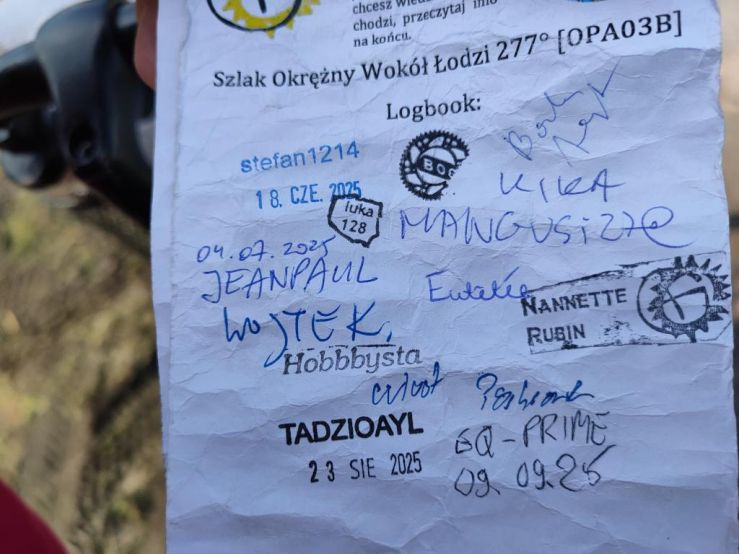 chcesz
chodzi, przeczytaj
na końcu.
Szlak Okrężny Wokół Łodzi 277° [OPA03B]
Logbook:
stefan1214
18. CZE. 2025
BOC
luka
128
KIKA
MANGUSIZ
04.07.2025
JEANPAUL
WOJTEK
Hobbbysta
NANNETTE
RUBIN
TADZIOAYL
23 SIE 2025
GQ-PRIME
09.09.25